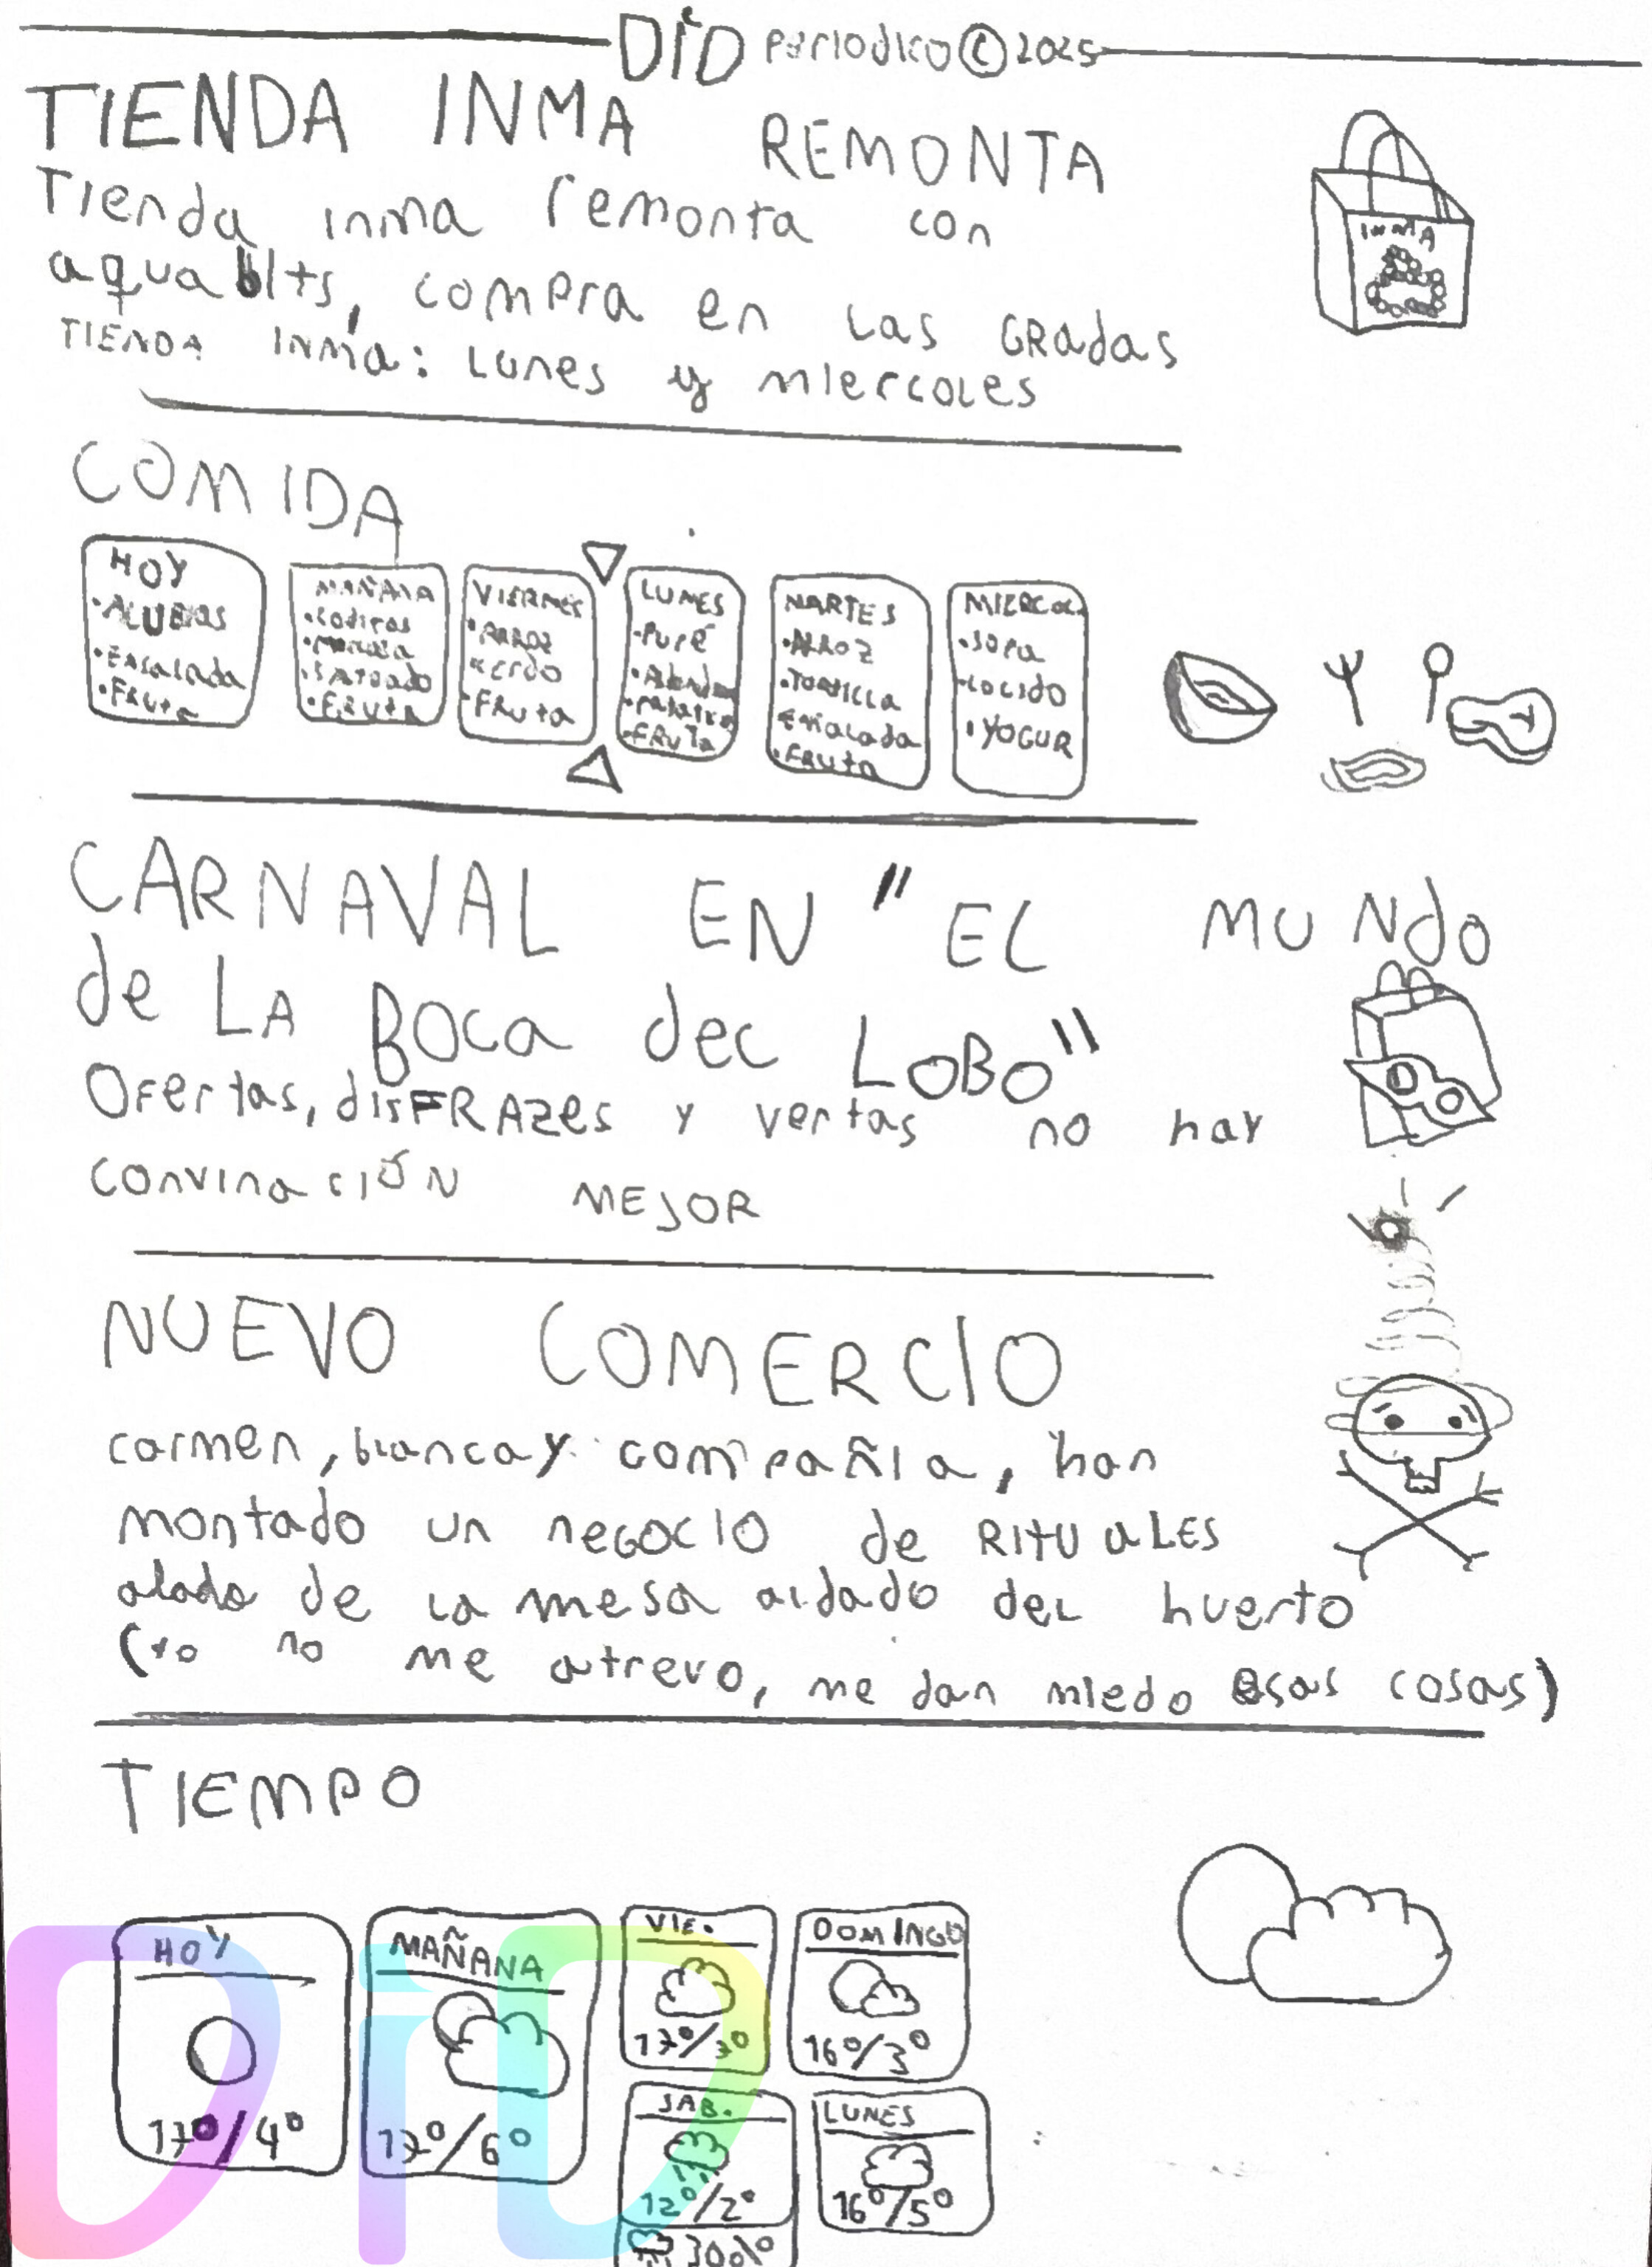 DiD Periodico © 2025
TIENDA INMA REMONTA
Tienda inma remonta con
aqua blts, compra en las GRadas
TIENDA INMa: Lunes y miercoles
INMA
COMIDA
HOY
•ALUBIAS
•Ensalada
•FRuta
MAÑANA
•FRuta
VIERNES
•ARROZ
cerdo
FRuta
LUNES
•Puré
•FRuTa
MARTES
•ARROZ
•TORTILLA
Ensalada
•FRuta
MIERCOL
•SOPa
•cocido
•YOGUR
CARNAVAL EN "EL MUNdo
de LA BOCa del LOBO"
Ofertas, disFRAZes y ventas no hay
convinaciÓN MEJOR
NUEVO COMERCIO
carmen, blanca y compañia, han
montado un negocio de RITUaLES
alado de la mesa aldado del huerto
(yo no me atrevo, me dan miedo esas cosas)
TIEMPO
HOY
17º/4º
MAÑANA
17º/6º
VIE.
17º/3º
DOMINGO
16º/3º
SAB.
12º/2º
30%
LUNES
16º/5º
DiD